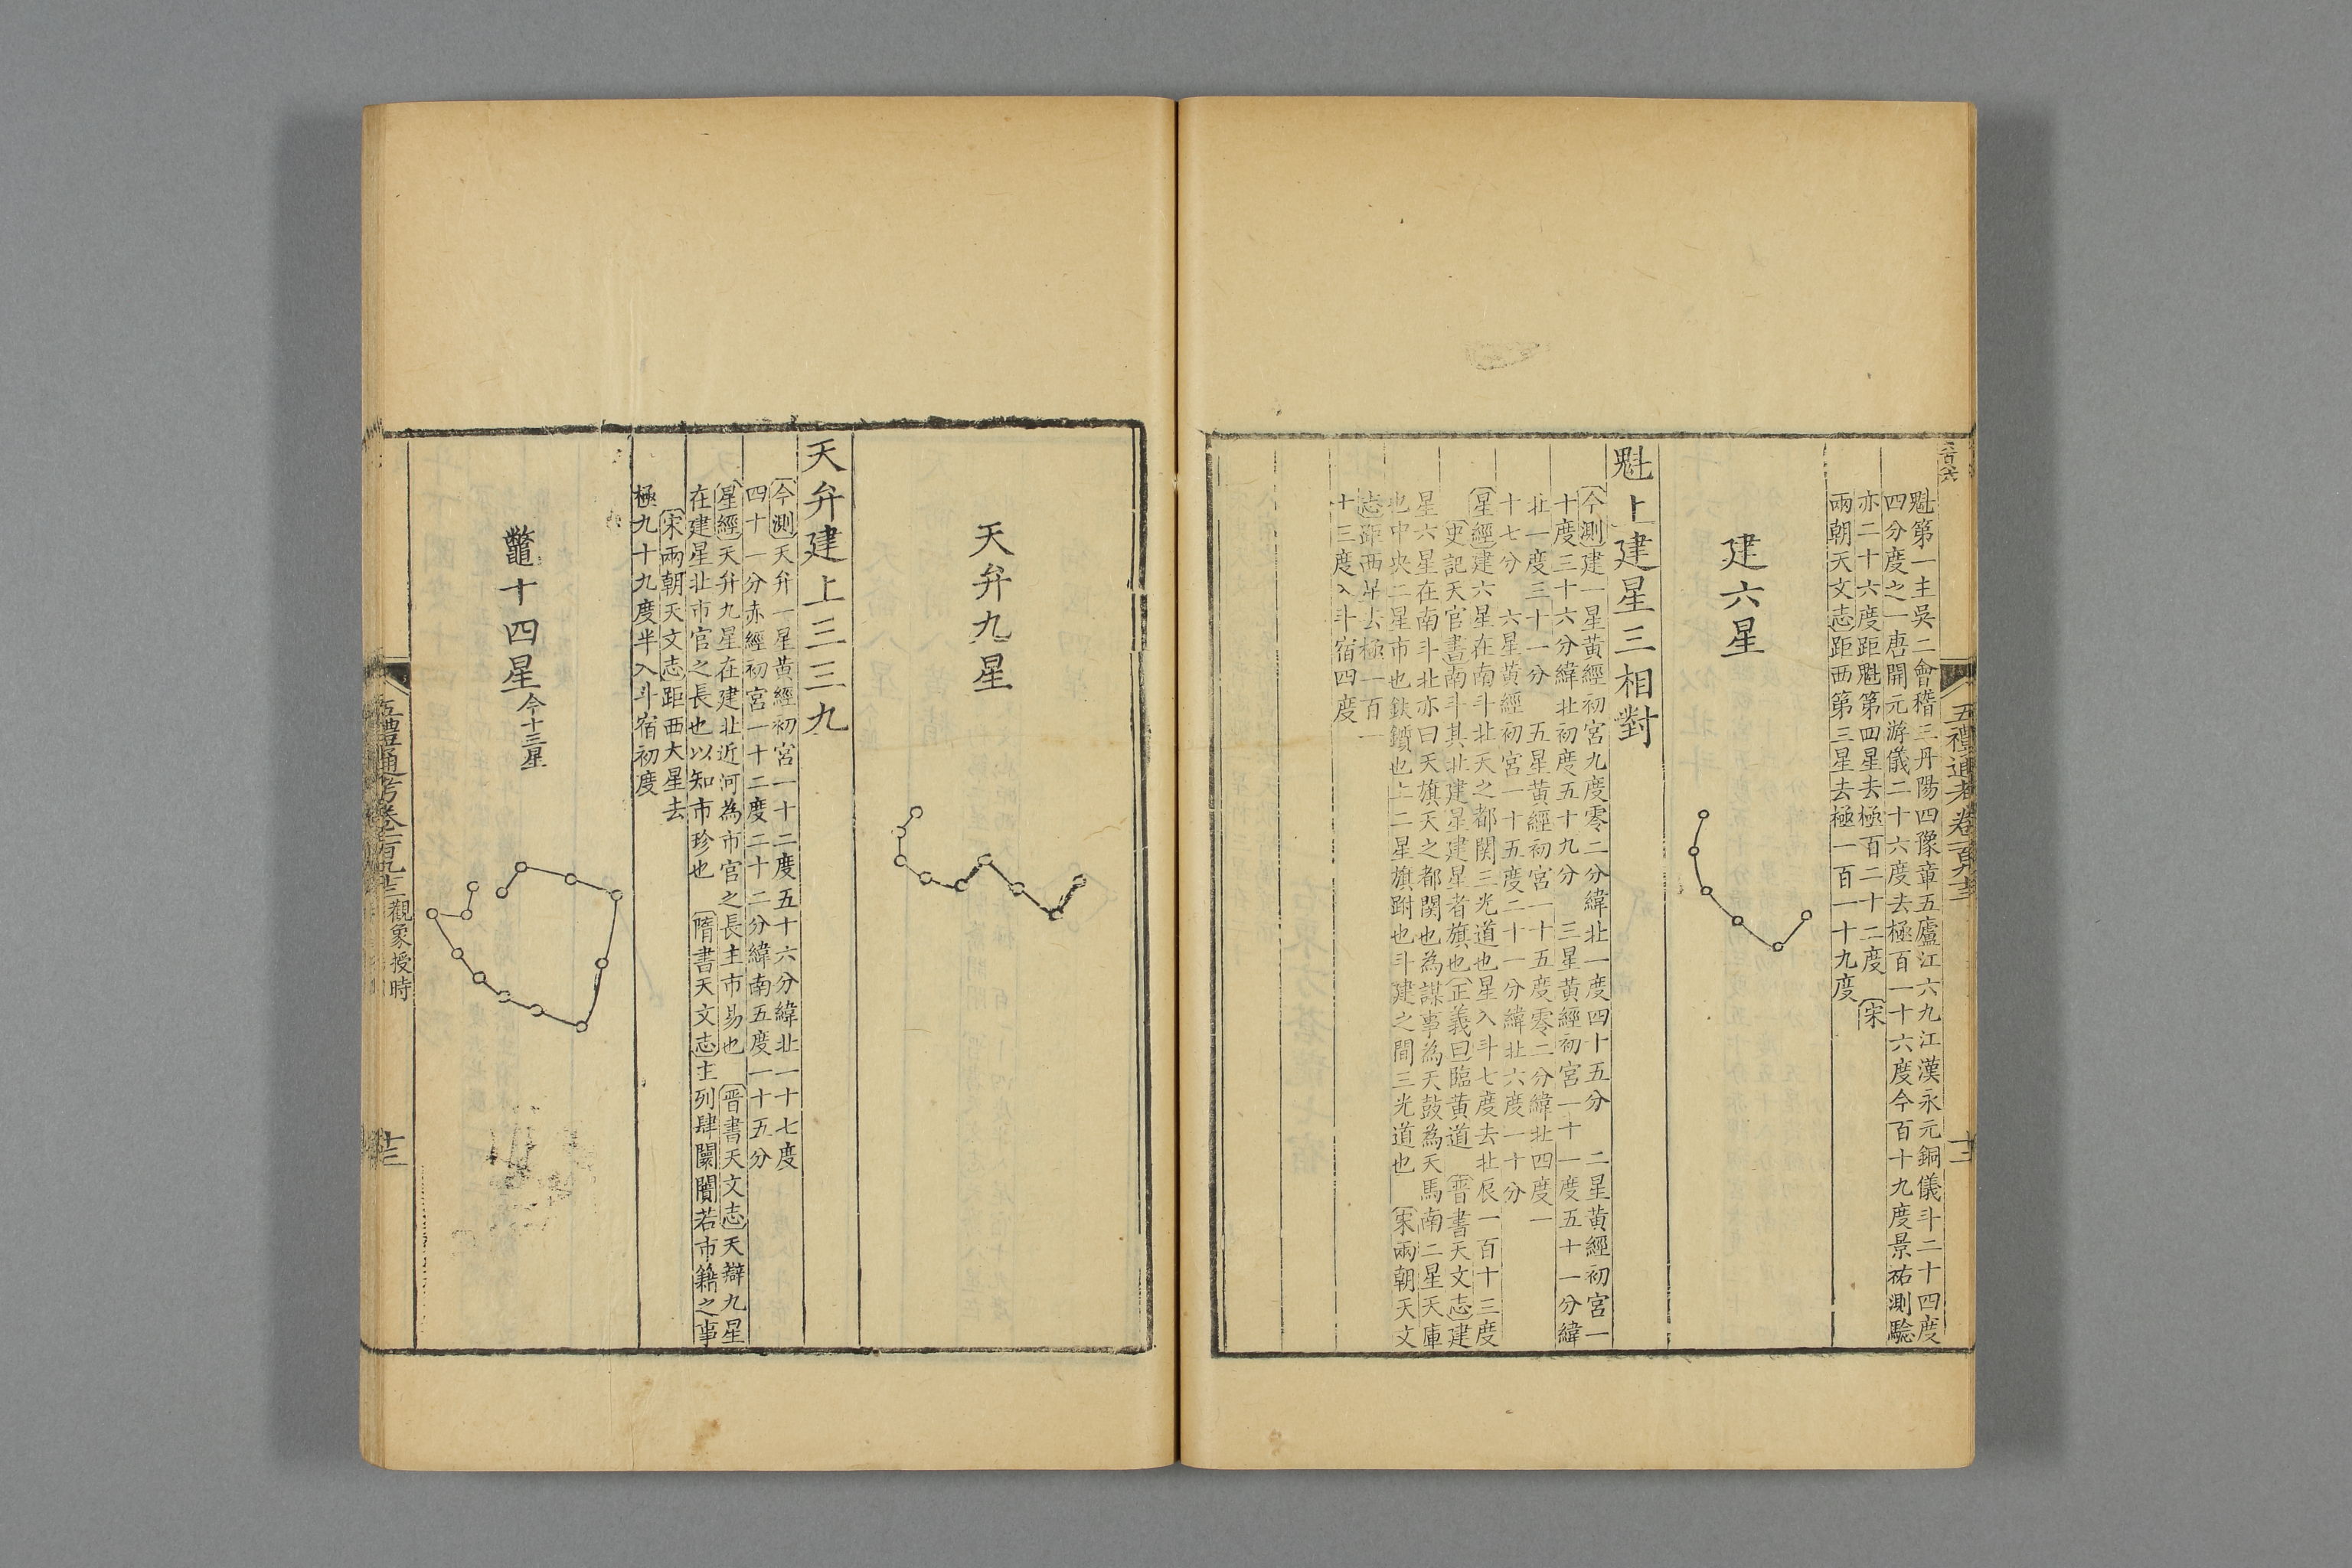 魁第一主吳二會稽三丹陽四豫章五廬江六九江漢永元銅儀斗二十四度
四分度之一唐開元游儀二十六度去極百一十六度今百十九度景祐測驗
亦二十六度距魁第四星去極百二十二度 宋
兩朝天文志距西第三星去極一百一十九度
建六星
魁上建星三相對
今測建一星黃經初宮九度零二分緯北一度四十五分 二星黃經初宮一
十度三十六分緯北初度五十九分 三星黃經初宮一十一度五十一分緯
北一度三十一分 五星黃經初宮一十五度零二分緯北四度一
十七分 六星黃經初宮一十五度二十一分緯北六度一十分
星經建六星在南斗北天之都関三光道也星入斗七度去北辰一百十三度
史記天官書南斗其北建星建星者旗也正義曰臨黃道 晋書天文志建
星六星在南斗北亦曰天旗天之都関也為謀事為天鼓為天馬南二星天庫
也中央二星市也鈇鑕也上二星旗跗也斗建之間三光道也 宋兩朝天文
志距西星去極一百一
十三度入斗宿四度
五禮通考卷一百九十三
十二
天弁九星
天弁建上三三九
今測天弁一星黃經初宮一十二度五十六分緯北一十七度
四十一分赤經初宮一十二度二十二分緯南五度一十五分
星經天弁九星在建北近河為市官之長主市易也 晋書天文志天辯九星
在建星北市官之長也以知市珍也 隋書天文志主列肆闤闠若市籍之事
宋兩朝天文志距西大星去
極九十九度半入斗宿初度
鼈十四星今十三星
五禮通考卷一百九十三 觀象授時
十三